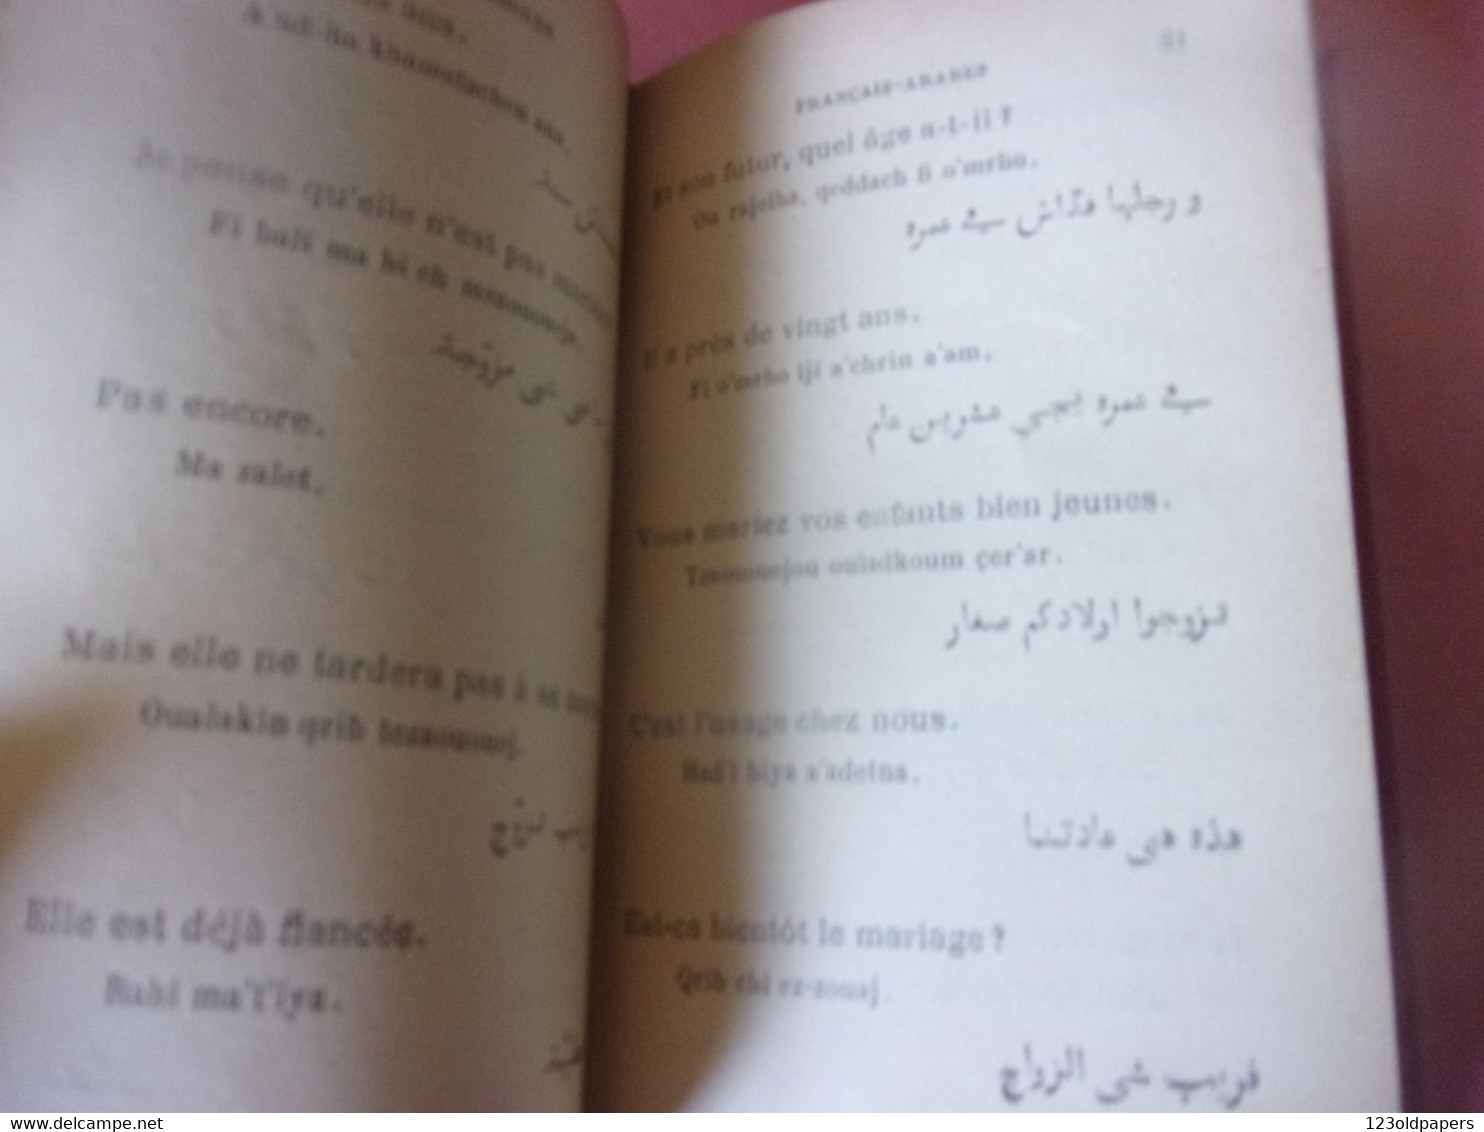 A'nd-ha khamstachen sna.
Je pense qu'elle n'est pas
Fi bali ma hi ch
شي مزوّجة
Pas encore.
Ma zalet.
Mais elle ne tardera pas à se
Oualakin qrib tezzouuoj.
تزوّج
Elle est déjà fiancée.
Rahi ma't'iya.
FRANÇAIS-ARABES
81
Et son futur, quel âge a-t-il ?
Ou rajelha, qeddach fi o'mrho.
و رجلها فدّاش في عمره
Il a près de vingt ans.
Fi o'mrho iji a'chrin a'am.
في عمره يجي عشرين عام
Vous mariez vos enfants bien jeunes.
ouladkoum çer'ar.
تزوجوا اولادكم صغار
C'est l'usage chez nous.
Had'i hiya a'adetna.
هذه هي عادتنا
Est-ce bientôt le mariage ?
Qrib chi ez-zouaj.
فريب شي الزواج
123oldpapers